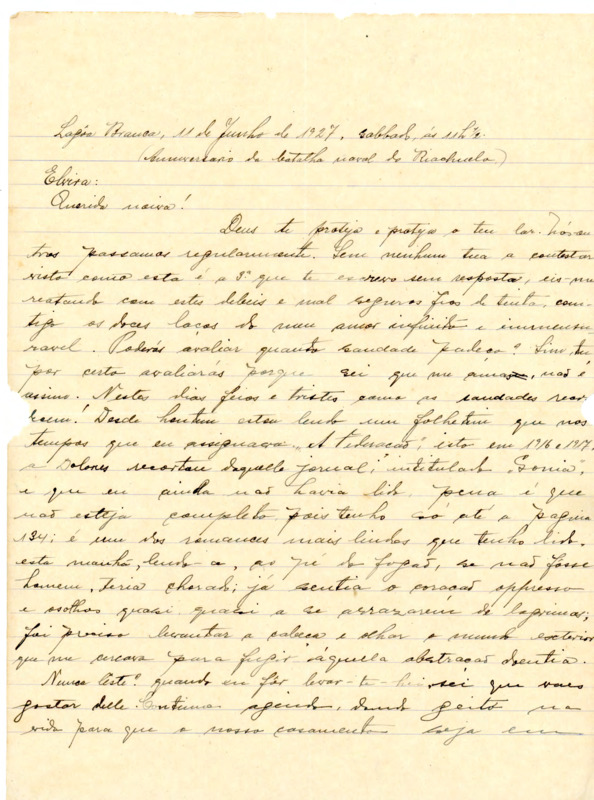 Lagôa Branca, 11 de Junho de 1927, sabbado, ás 11h½.
(Anniversario da batalha naval do Riachuelo)
Elvira:
Querida noiva!
Deus te proteja e proteja o teu lar. Nós ou-
tros passamos regularmente. Sem nenhuma tua a contestar
visto como esta é a 3ª que te escrevo sem resposta, eis-me
reatando com estes debeis e mal seguros fios de tinta, com-
tigo os doces laços do meu amor infindo e immensu-
ravel. Poderás avaliar quanta saudade padeço? Sim, tu
por certo avaliarás porque sei que me amas, não é
assim. Nestes dias frios e tristes como as saudades recor-
Desde hontem estou lendo um folhetim que nos
tempos que eu assignava "A Federação", isto em 1916 e 1917,
a Dolores recortou daquelle jornal, intitulado "Sonia",
e que eu ainda não havia lido, pena é que
não esteja completo pois tenho só até a pagina
134; é um dos romances mais lindos que tenho lido.
esta manhã, lendo-a, ao pé do fogão, se não fosse
homem, teria chorado; já sentia o coração oppresso
e os olhos quasi quasi a se arrazarem de lagrimas;
foi preciso levantar a cabeça e olhar o mundo exterior
que me cercava para fugir áquella abstração doentia.
Nunca leste? quando eu fôr levar-te-hei, sei que vaes
gostar delle. Continuo agindo, dando geito na
vida para que o nosso casamento seja em